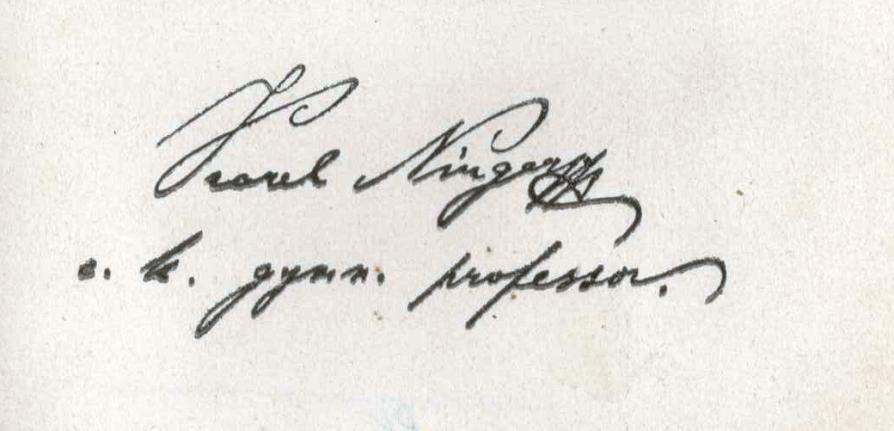 Karel Ninger
c. k. gymn. professor.